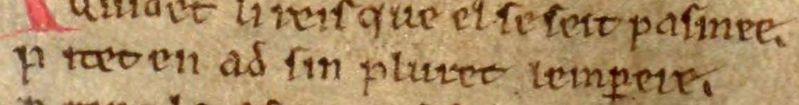 Quidet li reis que el se seit pasmee.
P itet en ad sin pluret lemperere.